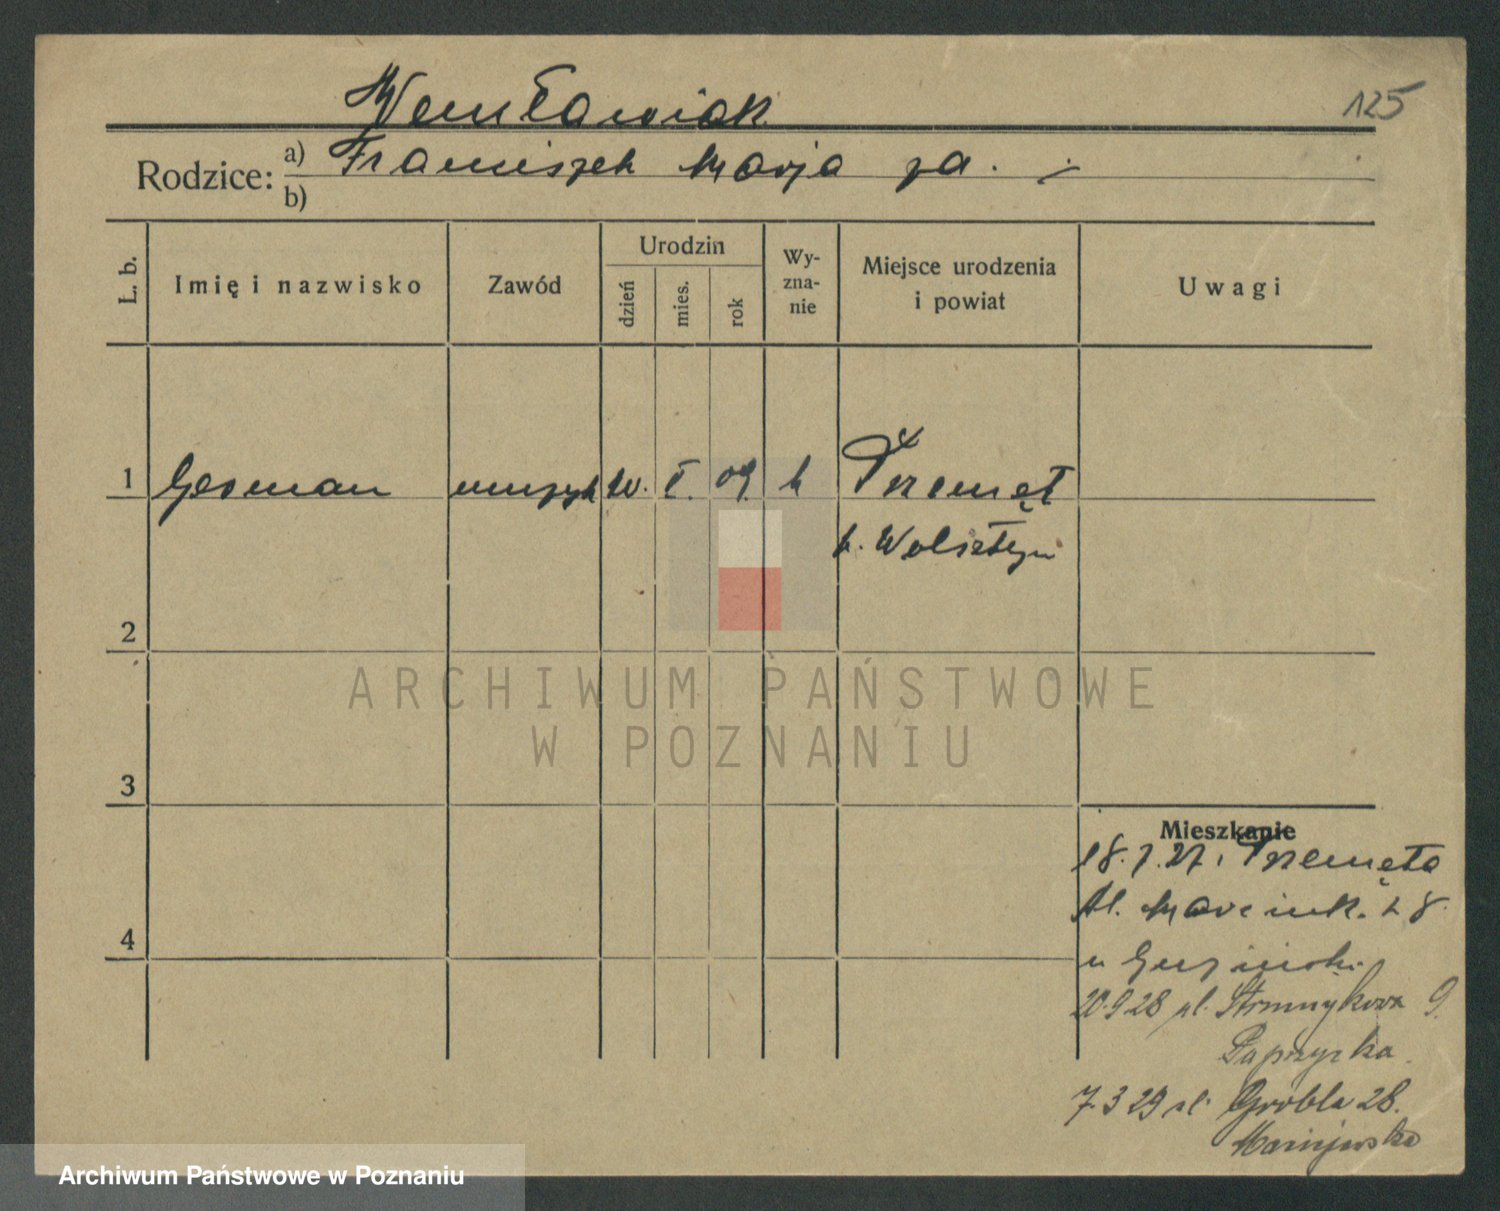 125
Wencławiak
Rodzice: a) Franciszek Marja za.
b)
L. b.
Imię i nazwisko
Zawód
Urodzin
dzień
mies.
rok
Wy-
zna-
nie
Miejsce urodzenia
i powiat
Uwagi
1 German muzyk 10. I. 09. k Przemęt
p. Wolsztyn
2
ARCHIWUM PAŃSTWOWE
W POZNANIU
3
Mieszkanie
18.7.27. Przemęta
Al. Marcink. 28
u
4
20.9.28 ul. Strumykowa 9.
Paprzycka
7.3 29 ul. Grobla 28.
Archiwum Państwowe w Poznaniu